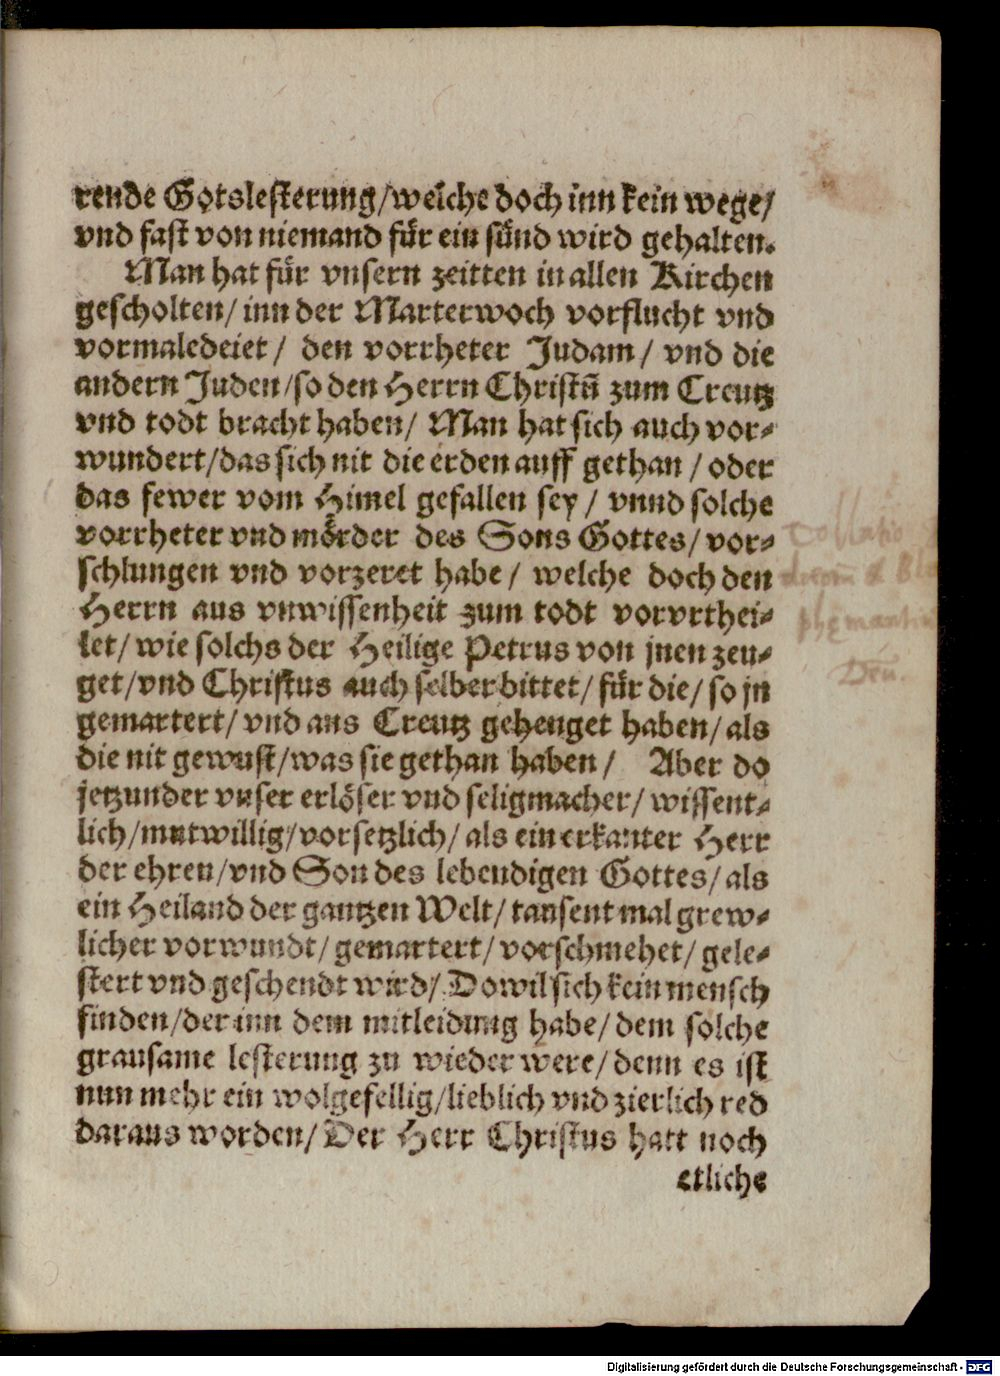 rende Gotslesterung/welche doch inn kein wege/
vnd fast von niemand für ein sünd wird gehalten.
Man hat für vnsern zeitten in allen Kirchen
gescholten/ inn der Marterwoch vorflucht vnd
vormaledeiet/ den vorrheter Judam/ vnd die
andern Juden/so den Herrn Christū zum Creutz
vnd todt bracht haben/ Man hat sich auch vor-
wundert/das sich nit die erden auff gethan/oder
das fewer vom Himel gefallen sey/ vnnd solche
vorrheter vnd mörder des Sons Gottes/ vor-
schlungen vnd vorzeret habe/ welche doch den
Herrn aus vnwissenheit zum todt vorvrthei-
let/ wie solchs der Heilige Petrus von jnen zeu-
get/vnd Christus auch selber bittet/ für die/ so jn
gemartert/ vnd ans Creutz gehenget haben/ als
die nit gewust/was sie gethan haben/ Aber do
jetzunder vnser erlöser vnd seligmacher/ wissent-
lich/mutwillig/vorsetzlich/ als ein erkanter Herr
der ehren/vnd Son des lebendigen Gottes/ als
ein Heiland der gantzen Welt/ tausent mal grew-
licher vorwundt/ gemartert/ vorschmehet/ gele-
stert vnd geschendt wird/ Do wil sich kein mensch
finden/der inn dem mitleidung habe/ dem solche
grausame lesterung zu wieder were/ denn es ist
nun mehr ein wolgefellig/lieblich vnd zierlich red
daraus worden/ Der Herr Christus hatt noch
etliche
Collatio
Digitalisierung gefördert durch die Deutsche Forschungsgemeinschaft - DFG